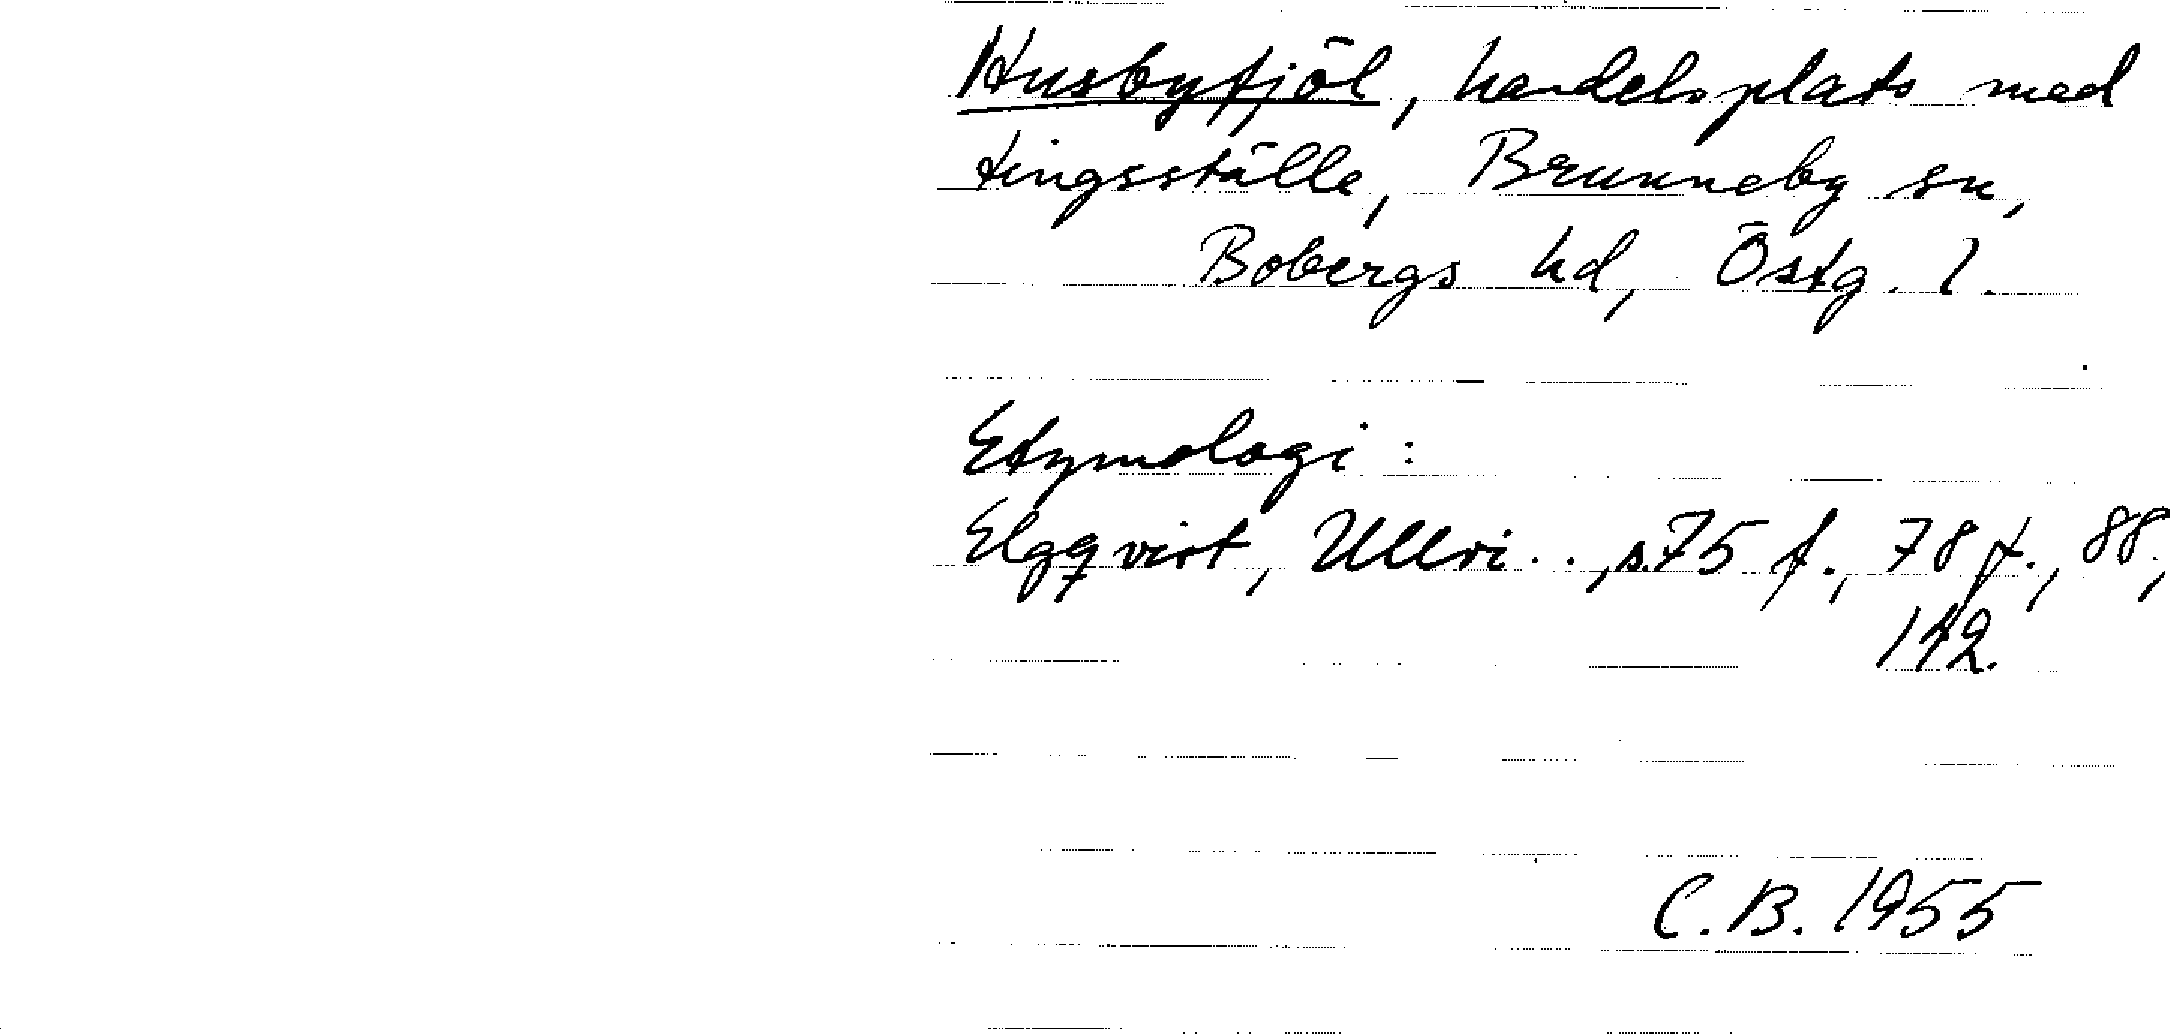 Husbyfjöl, handelsplats med
tingsställe, Brunneby sn,
Bobergs hd, Östg. l.
Etymologi:
Elgqvist, Ullvi . . , s. 75 f., 78 f., 88,
142.
C. B. 1955